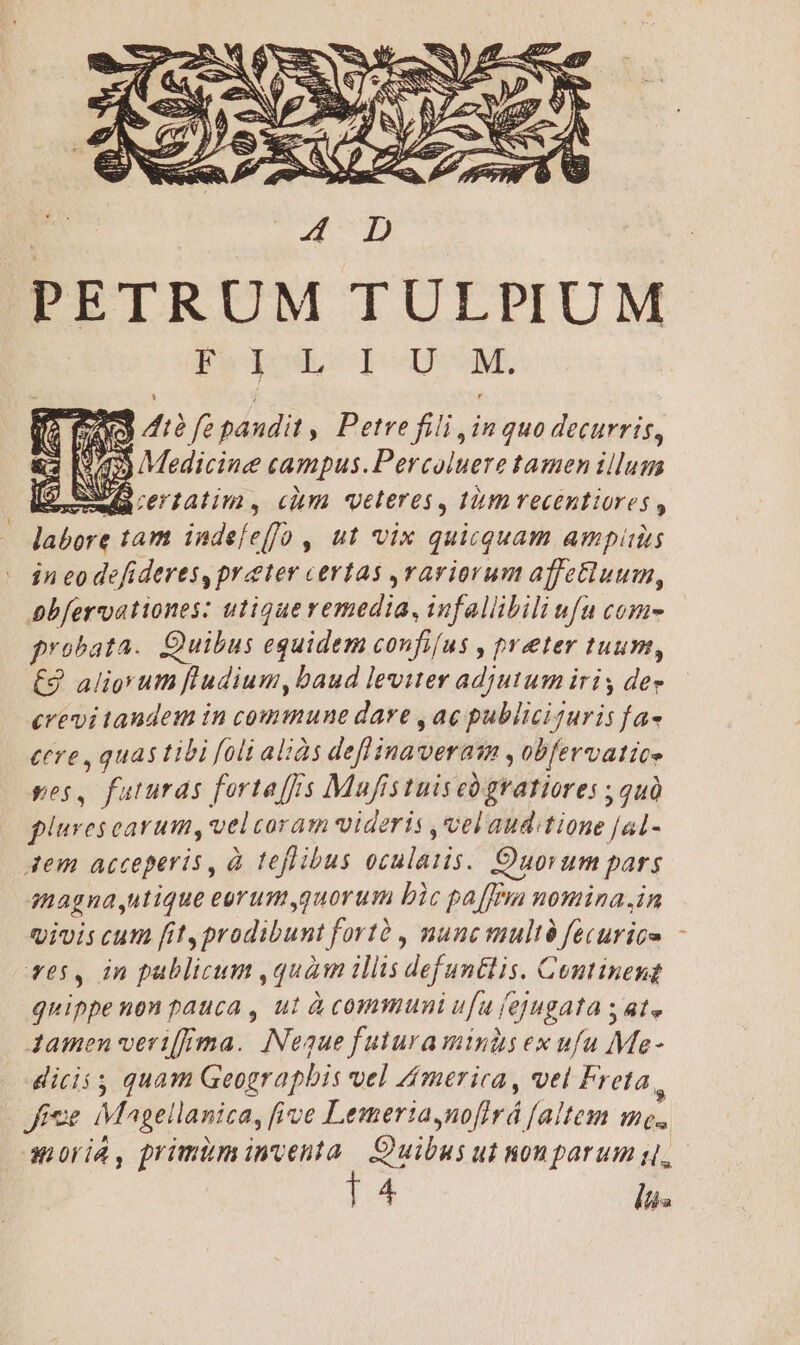 A D
PETRUM TULPIUM
FILIUM.
LAtè ſe pandit, Petre fili, in quo decurris,
Medicinæ campus. Percoluere tamen illum
certatim, cùm veteres, tùm recentiores,
labore tam indefeſſo, ut vix quicquam ampliùs
in eo deſideres, præter certas, rariorum affectuum,
obſervationes: utique remedia, infallibili uſu com-
probata. Quibus equidem confiſus, præter tuum,
& aliorum ſtudium, haud leviter adjutum iri, de-
crevi tandem in commune dare, ac publici juris fa-
cere, quas tibi ſoli aliàs deſtinaveram, obſervatio-
nes, futuras fortaſſis Muſis tuis eò gratiores; quò
plures earum, vel coram videris, vel auditione ſal-
tem acceperis, à teſtibus oculatis. Quorum pars
magna, utique eorum, quorum hîc paſſim nomina, in
vivis cum ſit, prodibunt fortè, nunc multò ſecurio-
res, in publicum, quàm illis defunctis. Continent
quippe non pauca, ut à communi uſu ſejugata; at-
tamen veriſſima. Neque futura minùs ex uſu Me-
dicis; quam Geographis vel America, vel Freta,
ſive Magellanica, ſive Lemeria, noſtrá ſaltem me-
moriâ, primùm inventa Quibus ut non parum il-
† 4 lu-